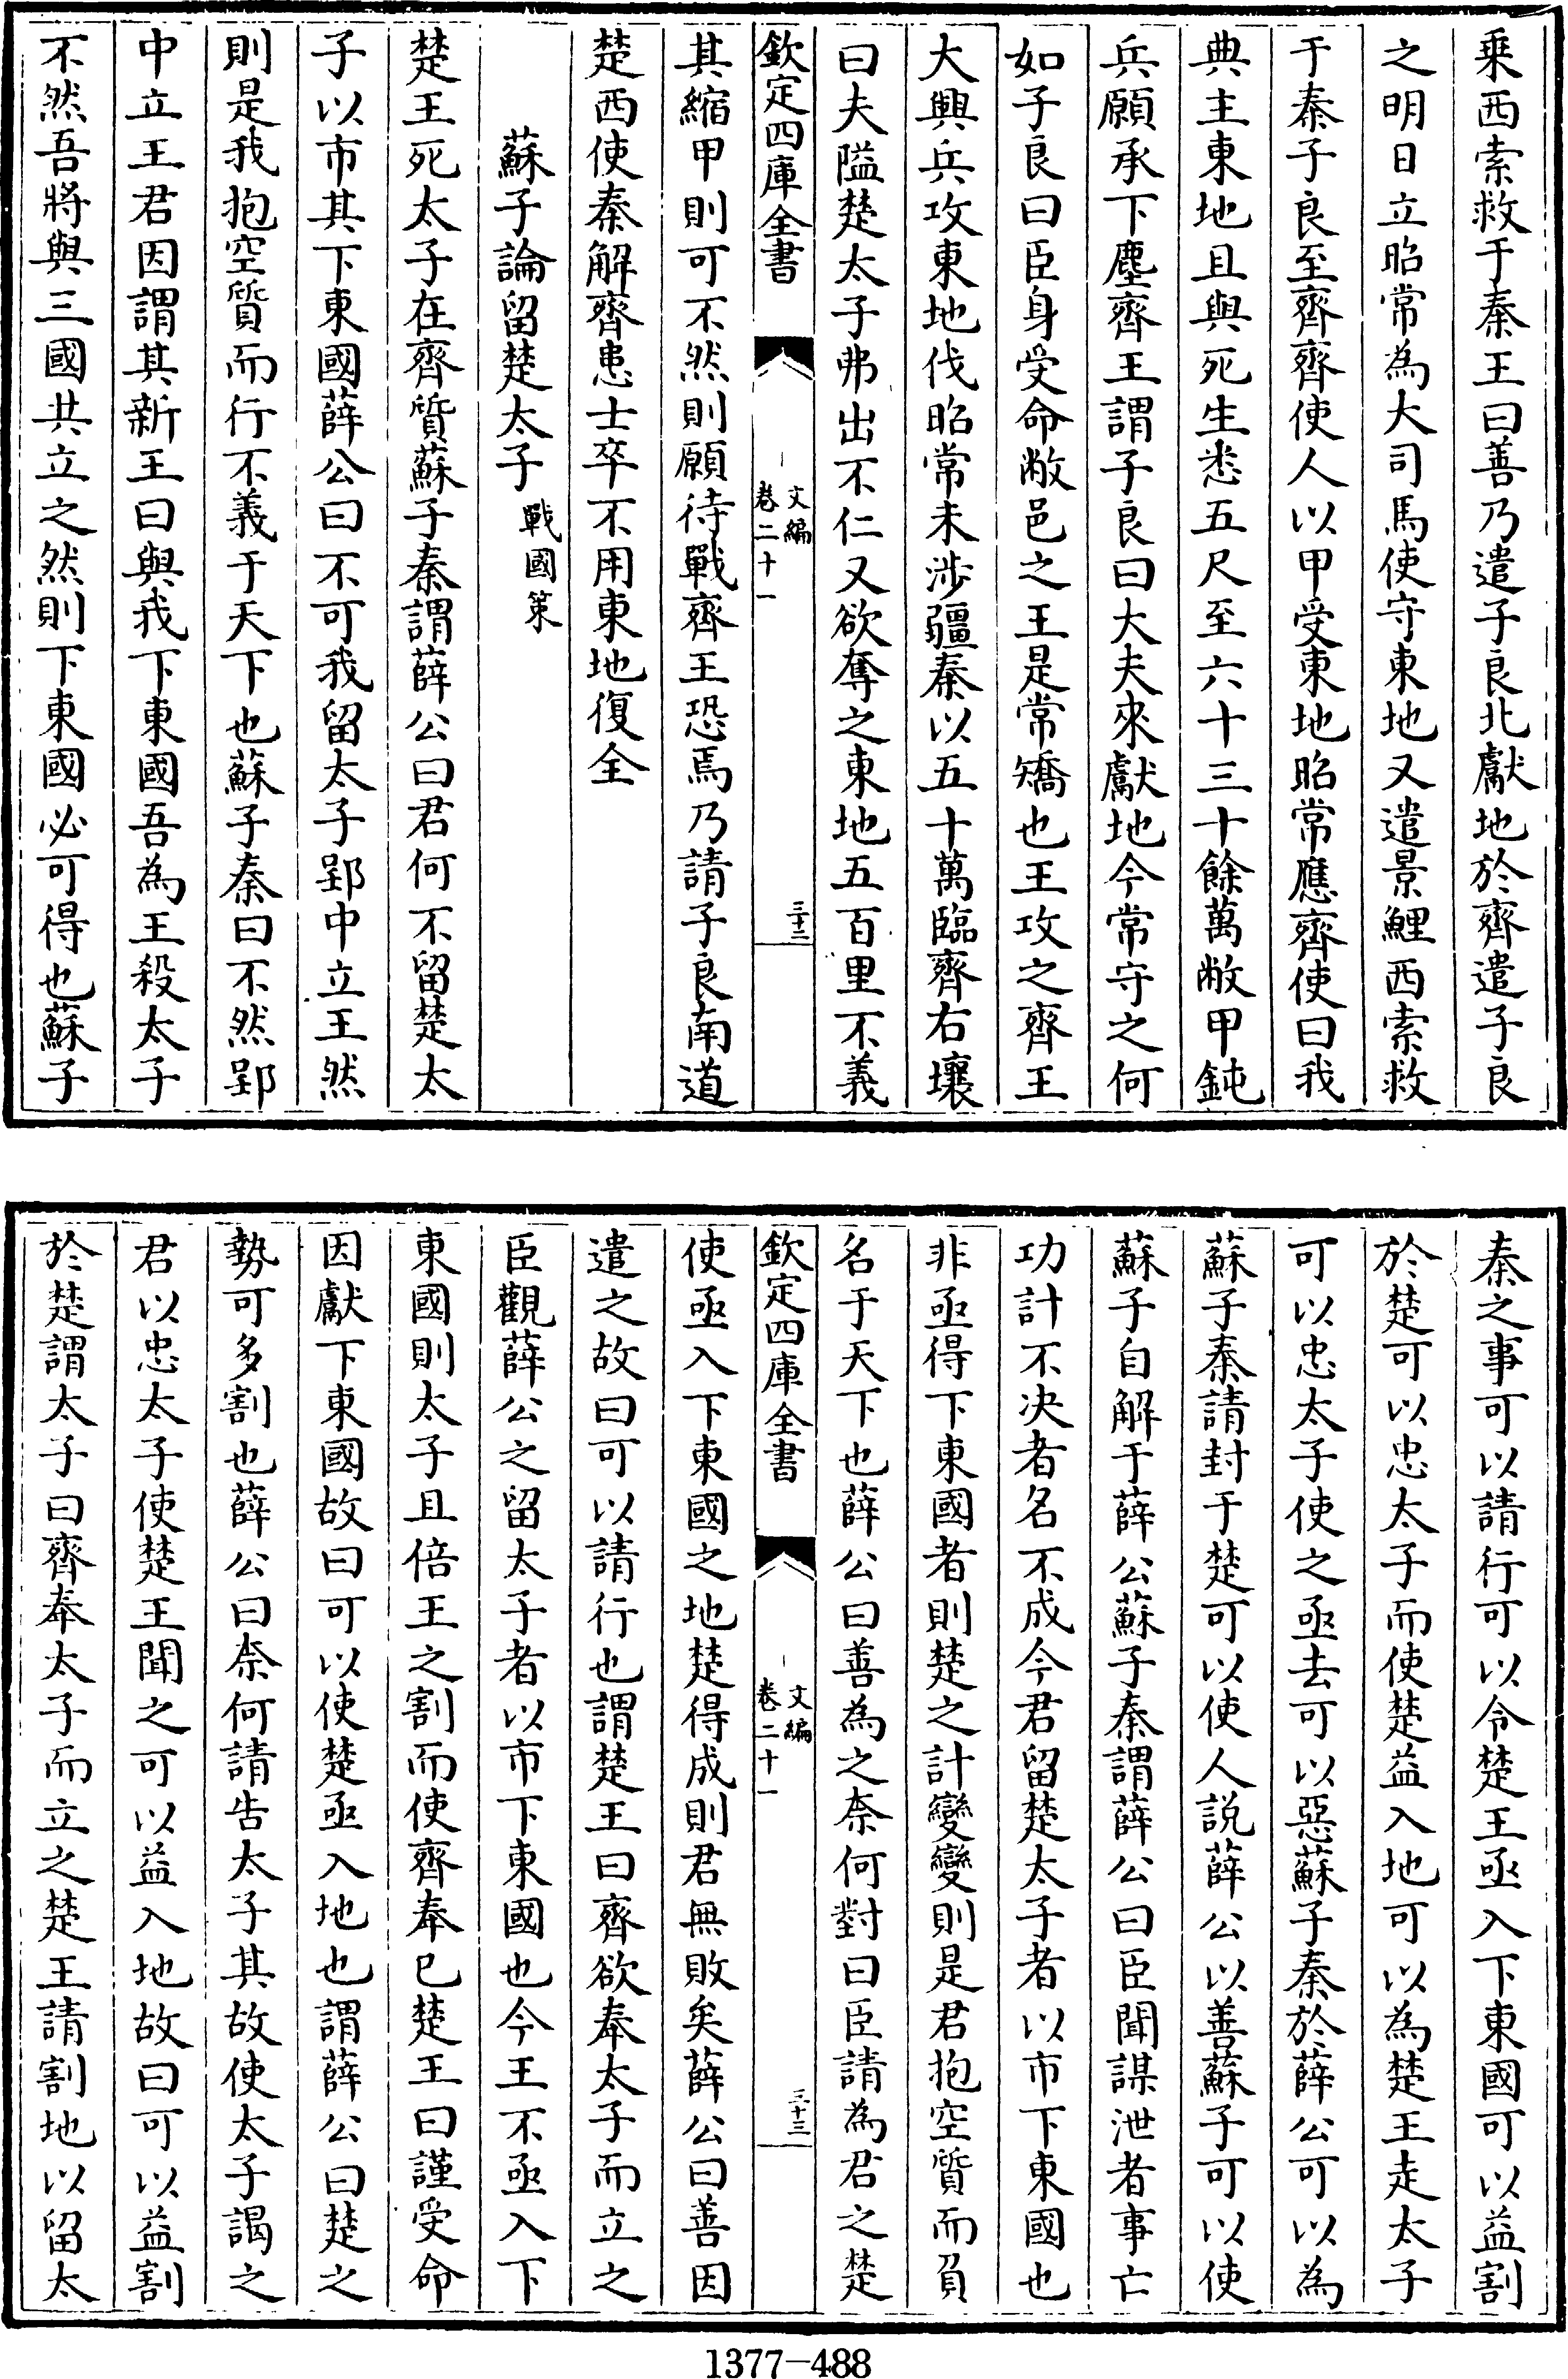 乗西索救于秦王曰善乃遣子良北獻地於齊遣子良
之明日立昭常為大司馬使守東地又遣景鯉西索救
于秦子良至齊齊使人以甲受東地昭常應齊使曰我
典主東地且與死生悉五尺至六十三十餘萬敝甲鈍
兵願承下塵齊王謂子良曰大夫來獻地今常守之何
如子良曰臣身受命敝邑之王是常矯也王攻之齊王
大興兵攻東地伐昭常未涉疆秦以五十萬臨齊右壤
曰夫隘楚太子弗出不仁又欲奪之東地五百里不義
欽定四庫全書
文編
卷二十一
三十二
其縮甲則可不然則願待戰齊王恐焉乃請子良南道
楚西使秦解齊患士卒不用東地復全
蘇子論留楚太子 戰國策
楚王死太子在齊質蘇子秦謂薛公曰君何不留楚太
子以市其下東國薛公曰不可我留太子郢中立王然
則是我抱空質而行不義于天下也蘇子秦曰不然郢
中立王君因謂其新王曰與我下東國吾為王殺太子
不然吾將與三國共立之然則下東國必可得也蘇子
秦之事可以請行可以令楚王亟入下東國可以益割
於楚可以忠太子而使楚益入地可以為楚王走太子
可以忠太子使之亟去可以惡蘇子秦於薛公可以為
蘇子秦請封于楚可以使人說薛公以善蘇子可以使
蘇子自解于薛公蘇子秦謂薛公曰臣聞謀泄者事亡
功計不决者名不成今君留楚太子者以市下東國也
非亟得下東國者則楚之計變變則是君抱空質而負
名于天下也薛公曰善為之奈何對曰臣請為君之楚
欽定四庫全書
文編
卷二十一
三十三
使亟入下東國之地楚得成則君無敗矣薛公曰善因
遣之故曰可以請行也謂楚王曰齊欲奉太子而立之
臣觀薛公之留太子者以市下東國也今王不亟入下
東國則太子且倍王之割而使齊奉已楚王曰謹受命
因獻下東國故曰可以使楚亟入地也謂薛公曰楚之
勢可多割也薛公曰柰何請告太子其故使太子謁之
君以忠太子使楚王聞之可以益入地故曰可以益割
於楚謂太子曰齊奉太子而立之楚王請割地以留太
1377-488